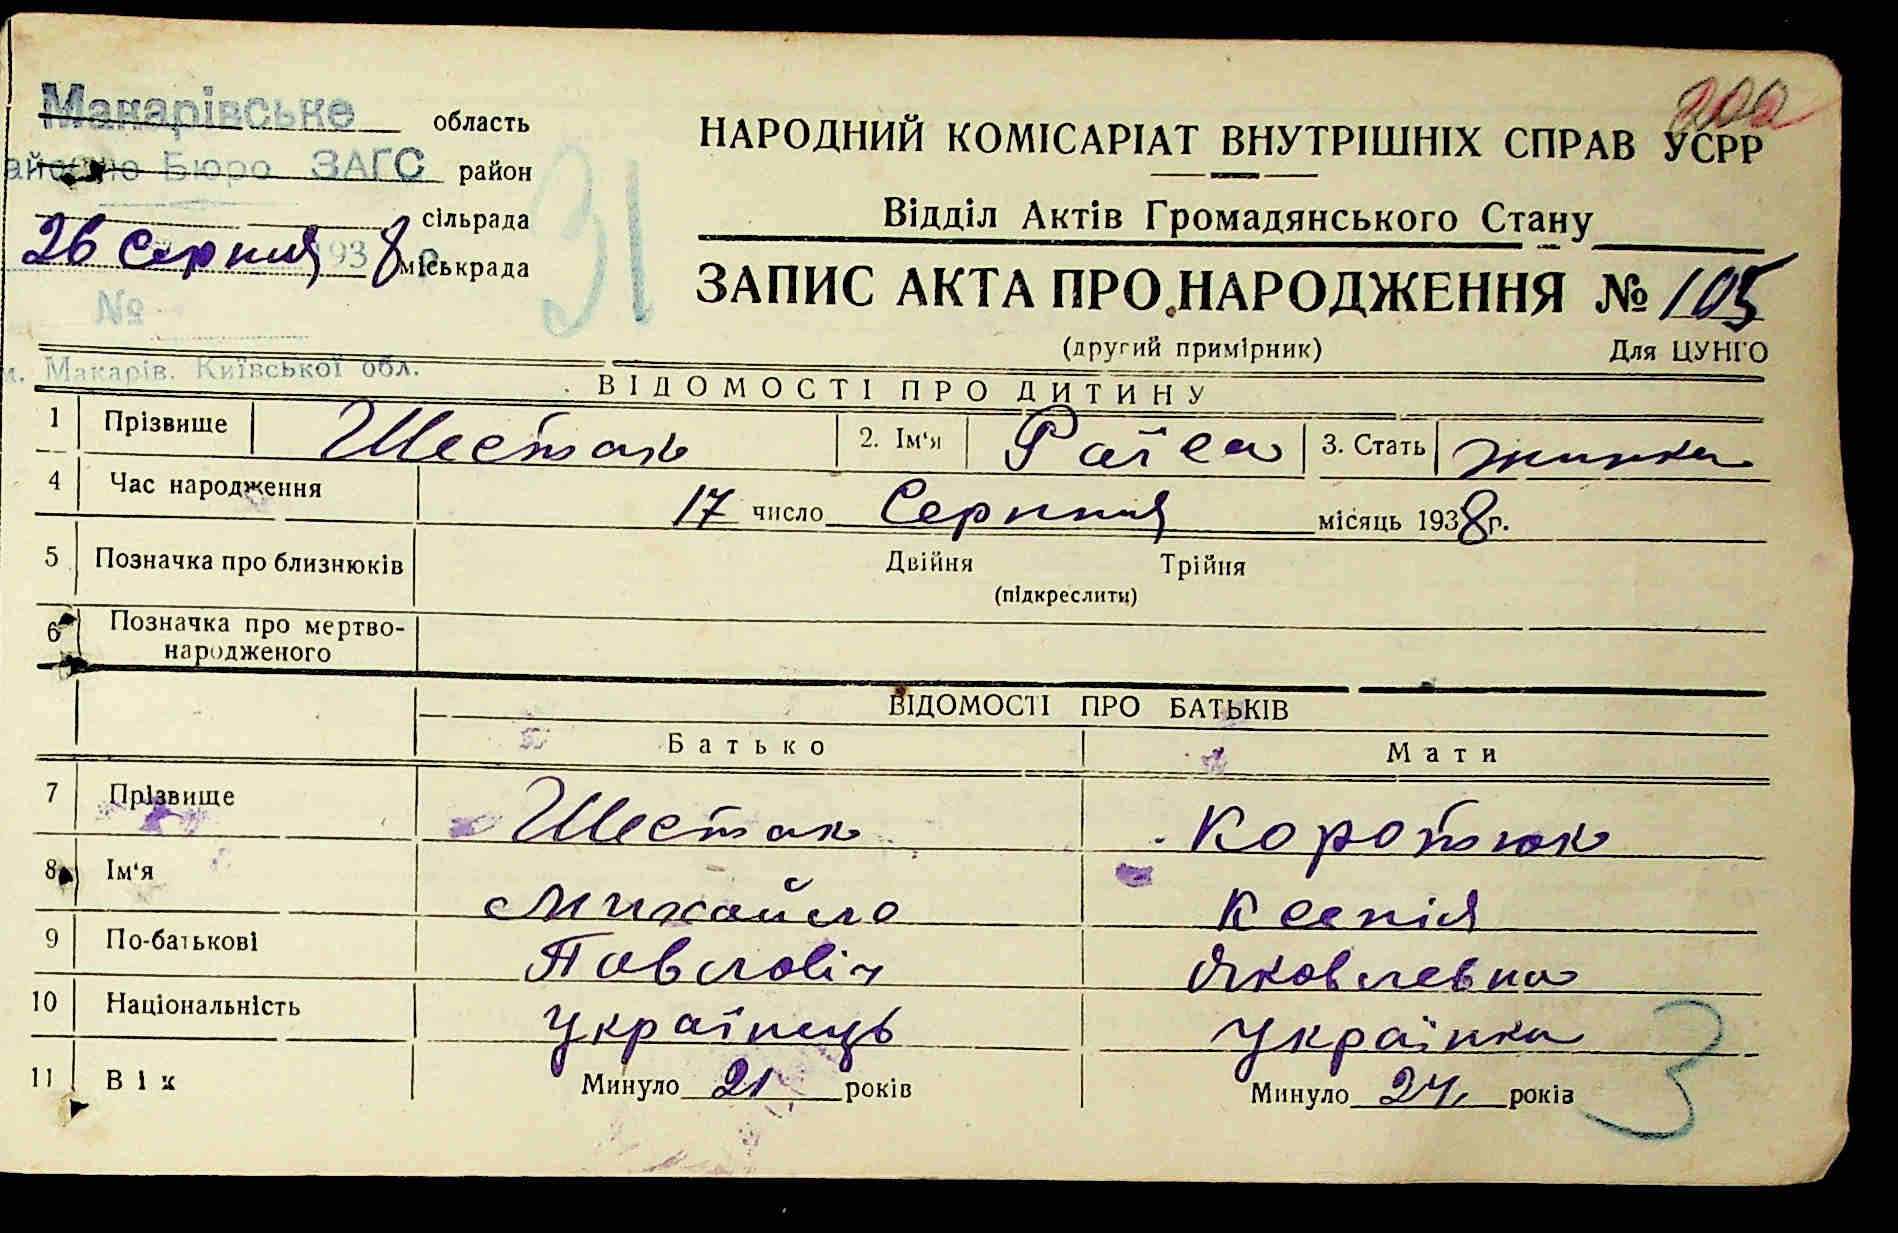 Макарівське область
айонно Бюро ЗАГС район
сільрада
26 Серпня 1938 р міськрада
№
м. Макарів. Київської обл.
31
200
НАРОДНИЙ КОМІСАРІАТ ВНУТРІШНІХ СПРАВ УСРР
Відділ Актів Громадянського Стану
ЗАПИС АКТА ПРО НАРОДЖЕННЯ № 105
(другий примірник) Для ЦУНГО
ВІДОМОСТІ ПРО ДИТИНУ
1 Прізвище Шестак 2. Ім'я Раїса 3. Стать жинка
4 Час народження 17 число Серпня місяць 1938 р.
5 Позначка про близнюків Двійня Трійня
(підкреслити)
6 Позначка про мертво-
народженого
ВІДОМОСТІ ПРО БАТЬКІВ
Батько Мати
7 Прізвище Шестак Коротюк
8 Ім'я Михайло Ксенія
9 По-батькові Павловіч Яковлевна
10 Національність українець українка
11 Вік Минуло 21 років Минуло 24 років
3